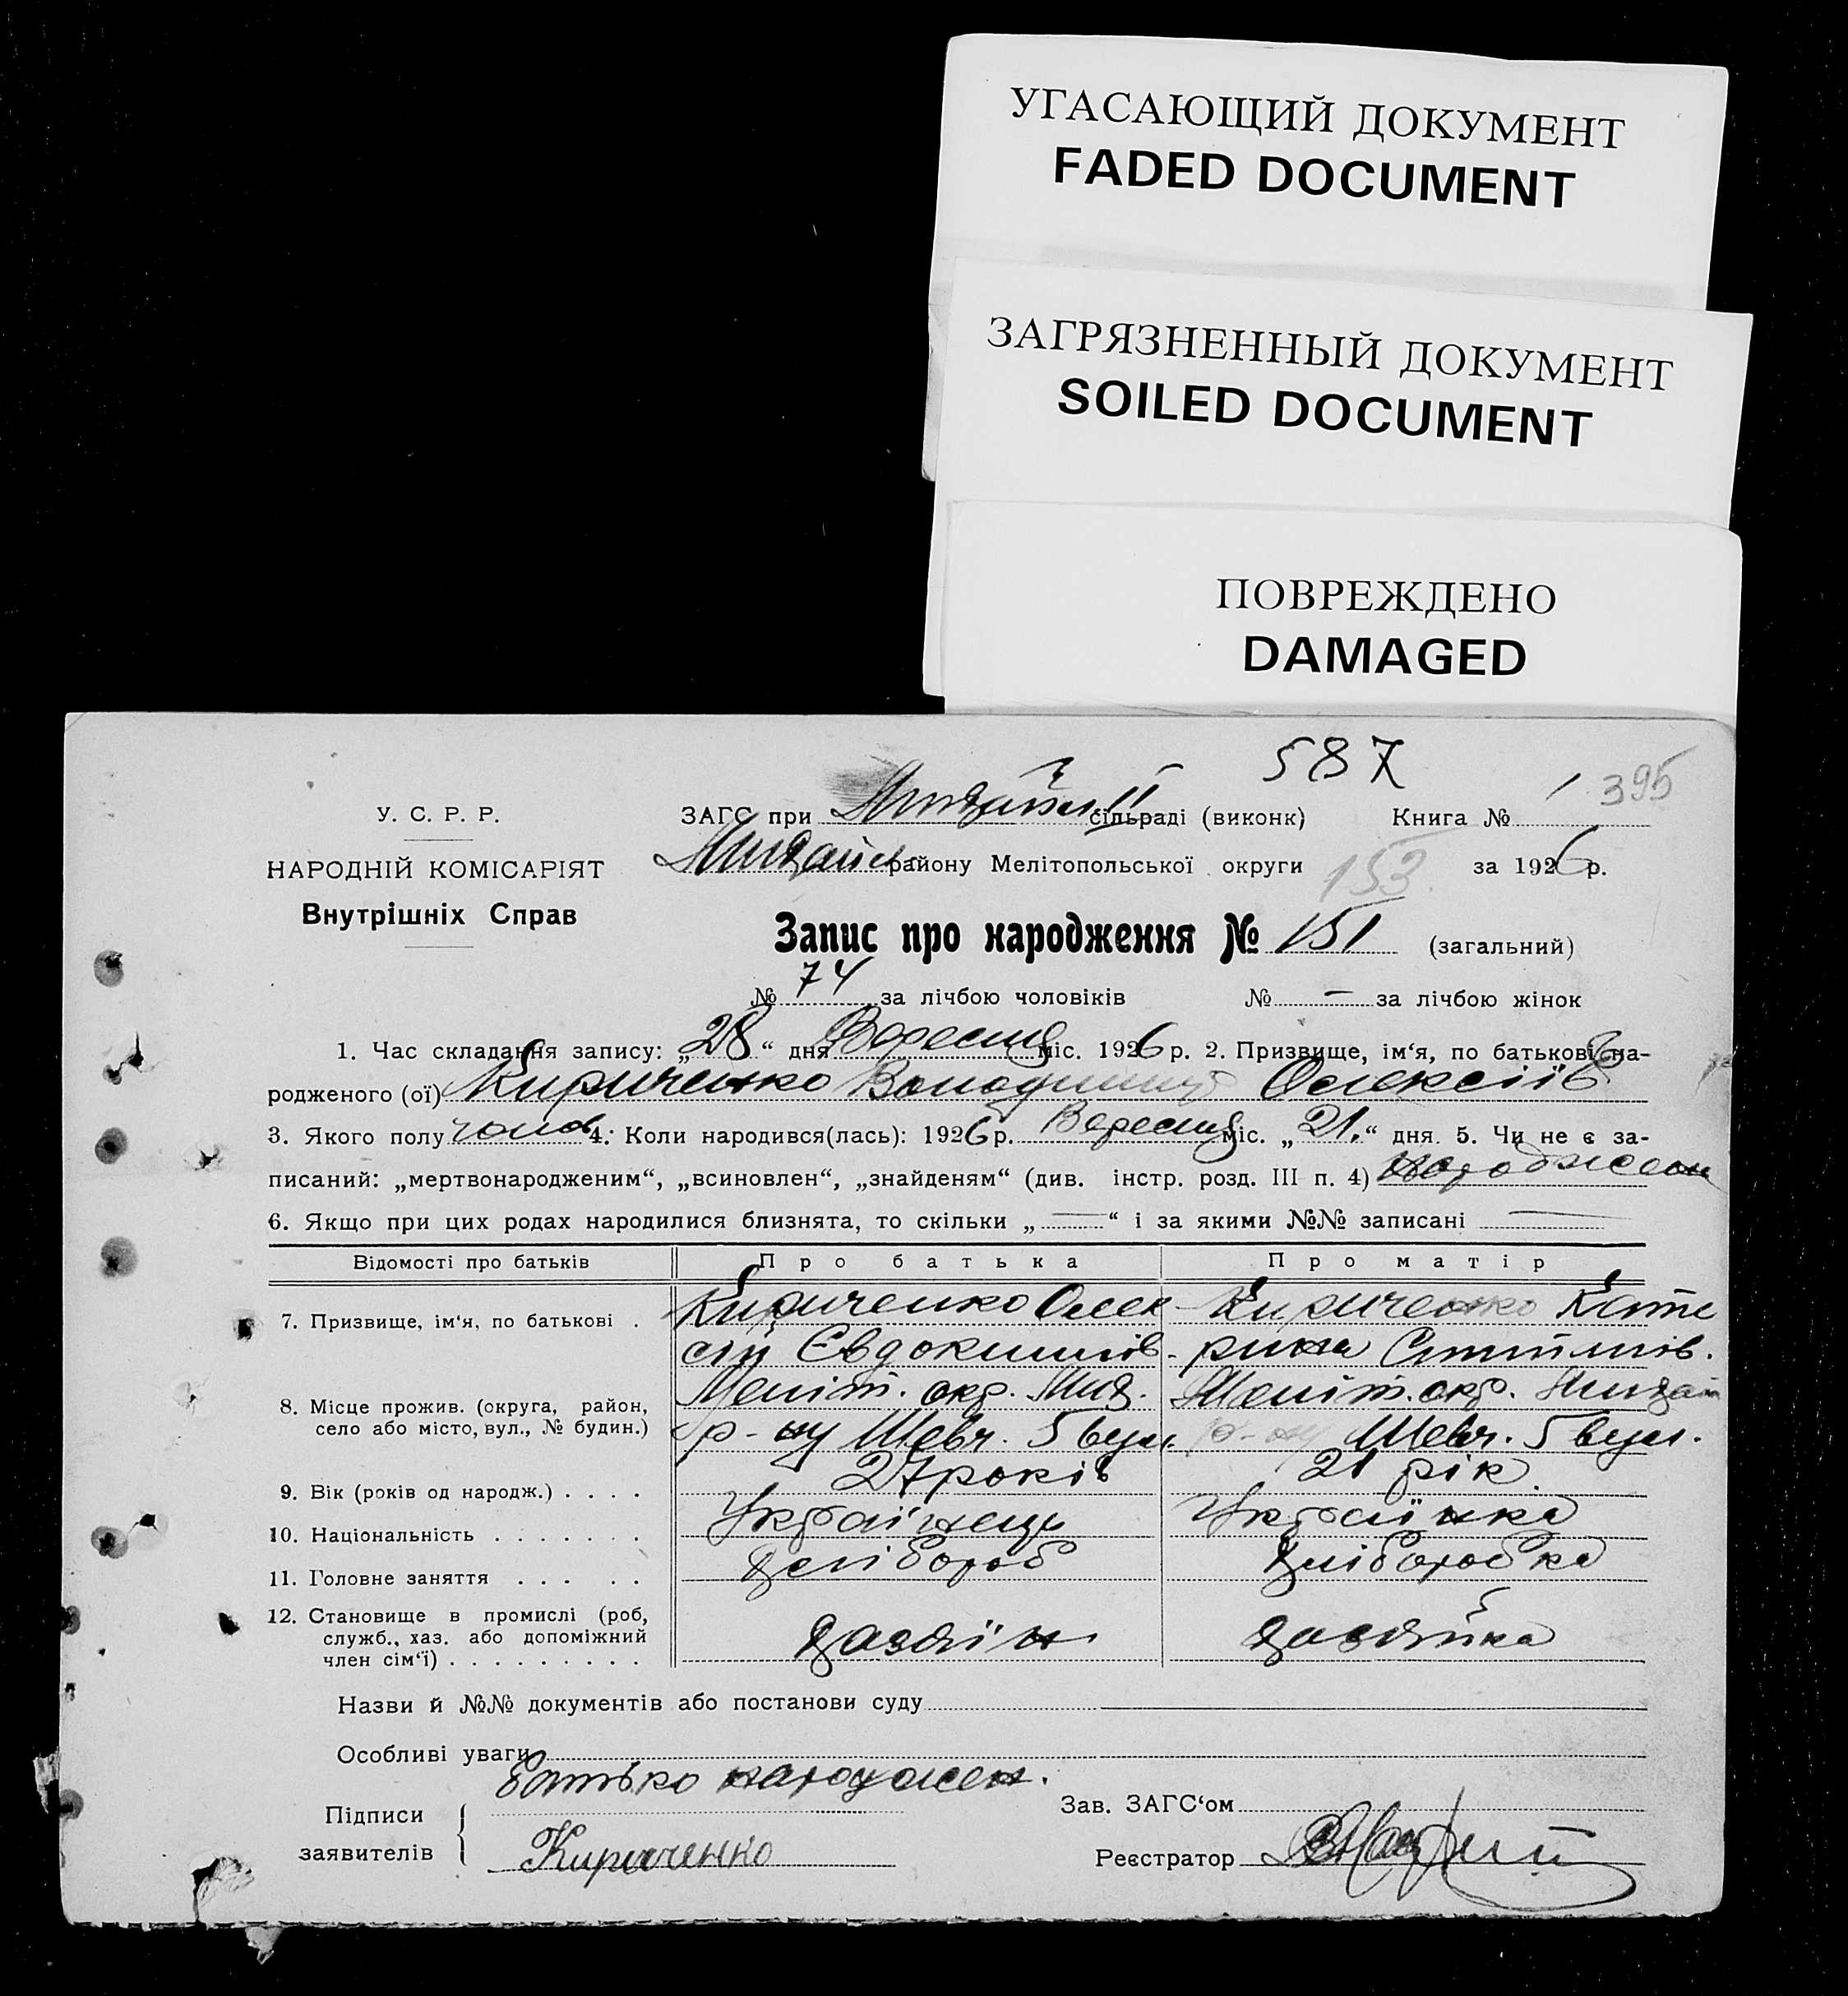 УГАСАЮЩИЙ ДОКУМЕНТ
FADED DOCUMENT
ЗАГРЯЗНЕННЫЙ ДОКУМЕНТ
SOILED DOCUMENT
ПОВРЕЖДЕНО
DAMAGED
587
395
У. С. Р. Р.
НАРОДНІЙ КОМІСАРІЯТ
Внутрішніх Справ
ЗАГС при сільраді (виконк) Книга № 1
району Мелітопольської округи 153 за 1926 р.
Запис про народження № 151 (загальний)
№ 74 за лічбою чоловіків № — за лічбою жінок
1. Час складання запису: „28“ дня Вересня міс. 1926 р. 2. Призвище, ім‘я, по батькові на-
родженого (ої) Кириченко Володимир Олексіїв
3. Якого полу чолов. 4. Коли народився(лась): 1926 р. Вересня міс. „21.“ дня. 5. Чи не є за-
писаний: „мертвонародженим“, „всиновлен“, „знайденям“ (див. інстр. розд. III п. 4) народжен
6. Якщо при цих родах народилися близнята, то скільки „—“ і за якими №№ записані —
Відомості про батьків Про батька Про матір
7. Призвище, ім‘я, по батькові . Кириченко Олек- Кириченко Кате
сій Євдокимів- рина
8. Місце прожив. (округа, район, Меліт. окр. Меліт. окр.
село або місто, вул., № будин.) р-ну Шевч. 5 вул. р-ну Шевч. 5 вул.
9. Вік (років од народж.) . . . . 27 років 21 рік
10. Національність . . . . . . . Українець Українка
11. Головне заняття . . . . . хлібороб хліборобка
12. Становище в промислі (роб, служб., хаз. або допоміжний член сім‘ї) . . . . . . . . . хазяїн хазяйка
Назви й №№ документів або постанови суду
Особливі уваги
Батько народжен.
Підписи
заявителів
Кириченко
Зав. ЗАГС‘ом
Реєстратор